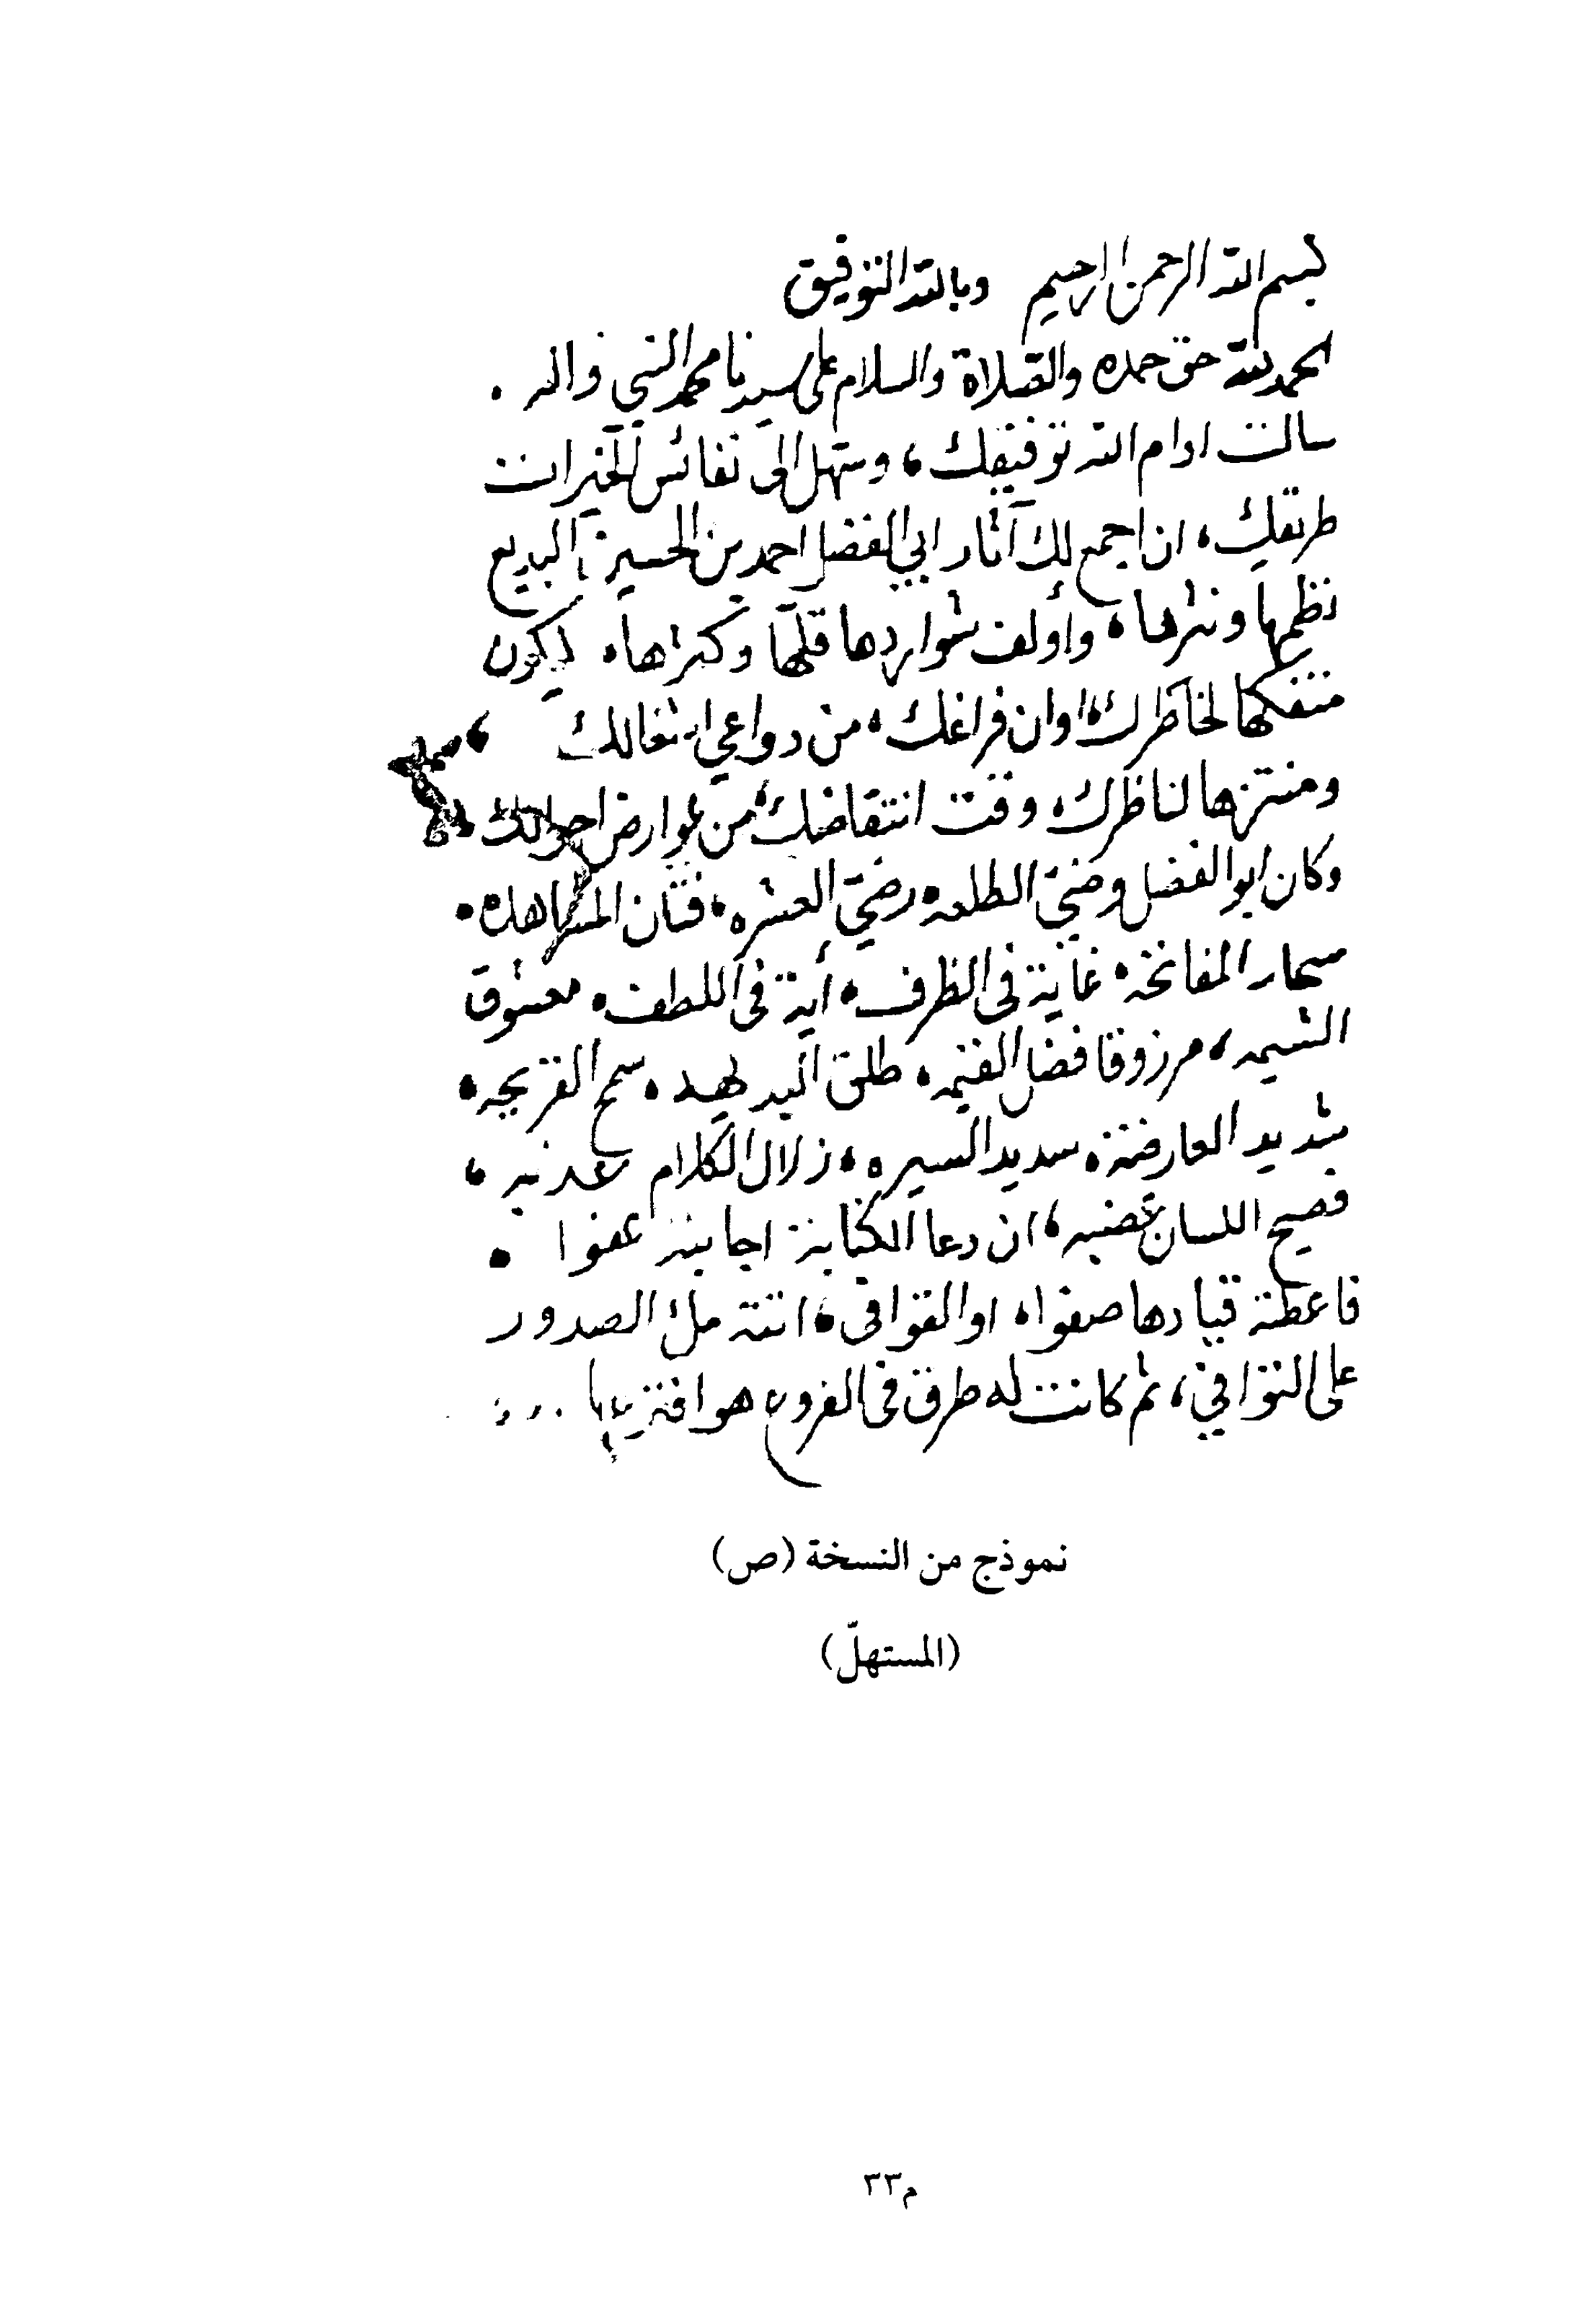 بسم الله الرحمن الرحيم وبالله التوفيق
الحمد لله حق حمده والصلاة والسلام على سيدنا محمد النبي واله .
سالت ادام الله توفيقك ، وسهل الى نفائس الخيرات
طريقك ، ان اجمع لك آثار ابي الفضل احمد بن الحسين البديع
نظمها ونثرها ، وأولف شواردها قلها وكثرها ، ليكون
متفكها لخاطرك اوان فراغك ، من دواعي اشغالك ،
ومنتزها لناظرك ، وقت انتقاضك من عوارض احوالك ،
وكان ابو الفضل وضئ الطلعه ، رضي العشره ، فتان المشاهده .
سحار المفاتحه ، غاية في الظرف ، أية في اللطف ، معشوق
الشيمه ، مرزوقا فضل القيمه ، طلق البديهه ، سمح القريحه ،
شديد العارضة ، سديد السيره ، زلال الكلام عذبه ،
فصيح اللسان عضبه ، ان دعا الكتابة اجابته عفوا .
فاعطته قيادها صفوا ، او القوافي ، اتته ملء الصدور
على التوافي ، ثم كانت له طرق في الفروع هو افترعها
نموذج من النسخة (ص)
(المستهلّ)
م٣٣